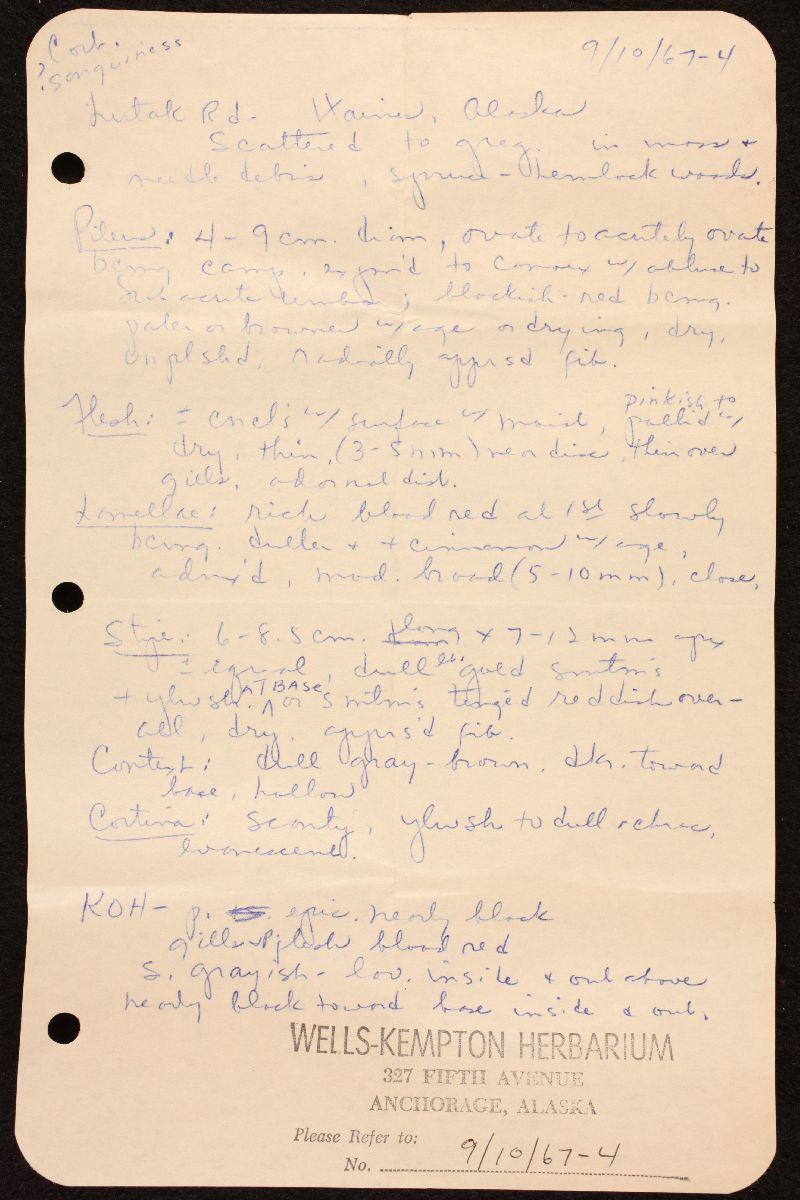 Cort.
? sanguineus
9/10/67-4
Lutak Rd. Haines, Alaska
Scattered to greg. in moss +
needle debris, spruce-hemlock woods.
Pileus: 4-9 cm. diam, ovate to acutely ovate
bcmg camp. expn'd to convex w/ obtuse to
subacute umbo; blackish-red bcmg.
paler or browner w/age or drying, dry,
unplshd, radially apprsd fib.
Flesh: ± cncl's w/ surface w/ moist, pinkish to pallid w/
dry, thin, (3-5 mm) near disc, thin over
gills, odor not dist.
Lamellae: rich blood red at 1st slowly
bcmg. duller + + cinnamon w/ age,
adnx'd, mod. broad (5-10 mm), close,
Stipe: 6-8.5 cm. long x 7-12 mm apex
± equal, dull gold smtm's
+ ylwsh. AT BASE, or smtm's tinged reddish over-
all, dry, apprs'd fib.
Context: dull gray-brown, dkr. toward
base, hollow
Cortina: scanty, ylwsh to dull ochrac,
evanescent.
KOH- p. epic. nearly black
gills + P. flesh blood red
s. grayish-lav. inside + out above
nearly black toward base inside & out.
WELLS-KEMPTON HERBARIUM
327 FIFTH AVENUE
ANCHORAGE, ALASKA
Please Refer to:
No. 9/10/67-4